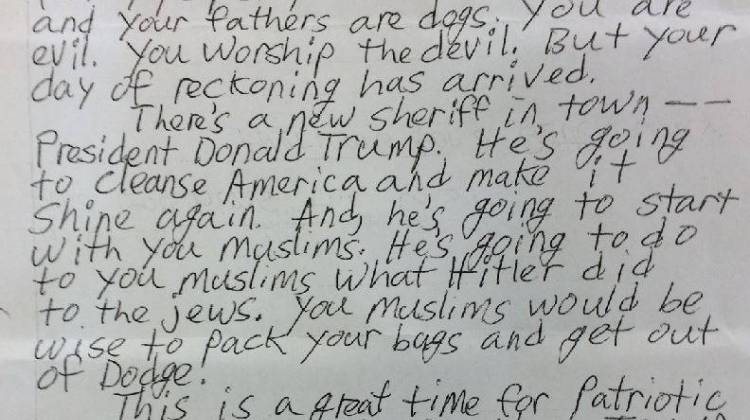 and your fathers are dogs. You are
evil. You worship the devil. But your
day of reckoning has arrived.
There's a new sheriff in town --
President Donald Trump. He's going
to cleanse America and make it
shine again. And, he's going to start
with you muslims. He's going to do
to you muslims what Hitler did
to the jews. You muslims would be
wise to pack your bags and get out
of Dodge!
This is a great time for Patriotic